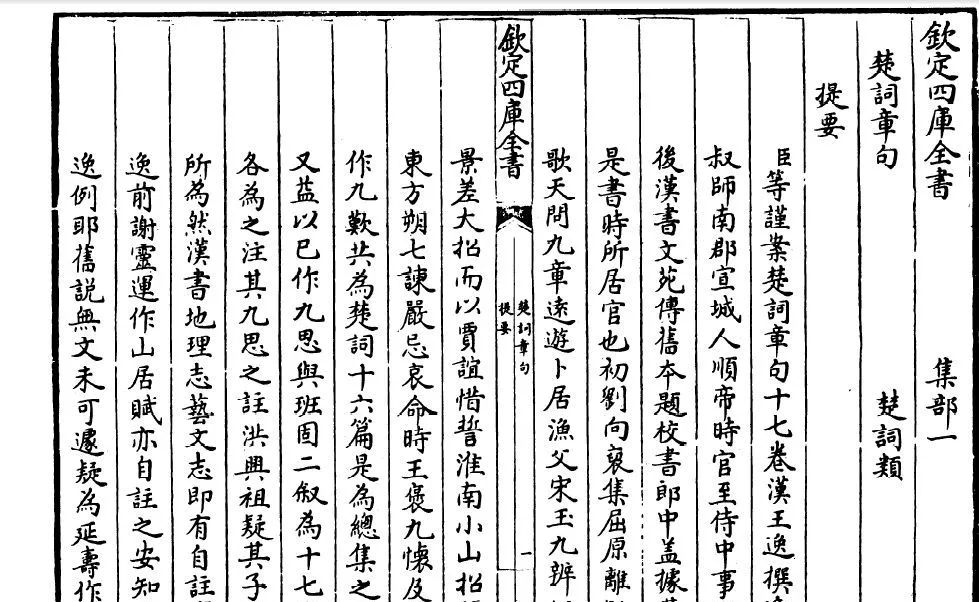 欽定四庫全書 集部一
楚詞章句 楚詞類
提要
臣等謹案楚詞章句十七卷漢王逸撰
叔師南郡宣城人順帝時官至侍中事
後漢書文苑傳舊本題校書郎中盖據
是書時所居官也初劉向裒集屈原離
歌天問九章逺遊卜居漁父宋玉九辨
欽定四庫全書
楚詞章句
提要
一
景差大招而以賈誼惜誓淮南小山招
東方朔七諫嚴忌哀命時王褒九懷及
作九歎共為楚詞十六篇是為總集之
又益以已作九思與班固二叙為十七
各為之注其九思之註洪興祖疑其子
所為然漢書地理志藝文志即有自註
逸前謝靈運作山居賦亦自註之安知
逸例耶舊説無文未可遽疑為延壽作